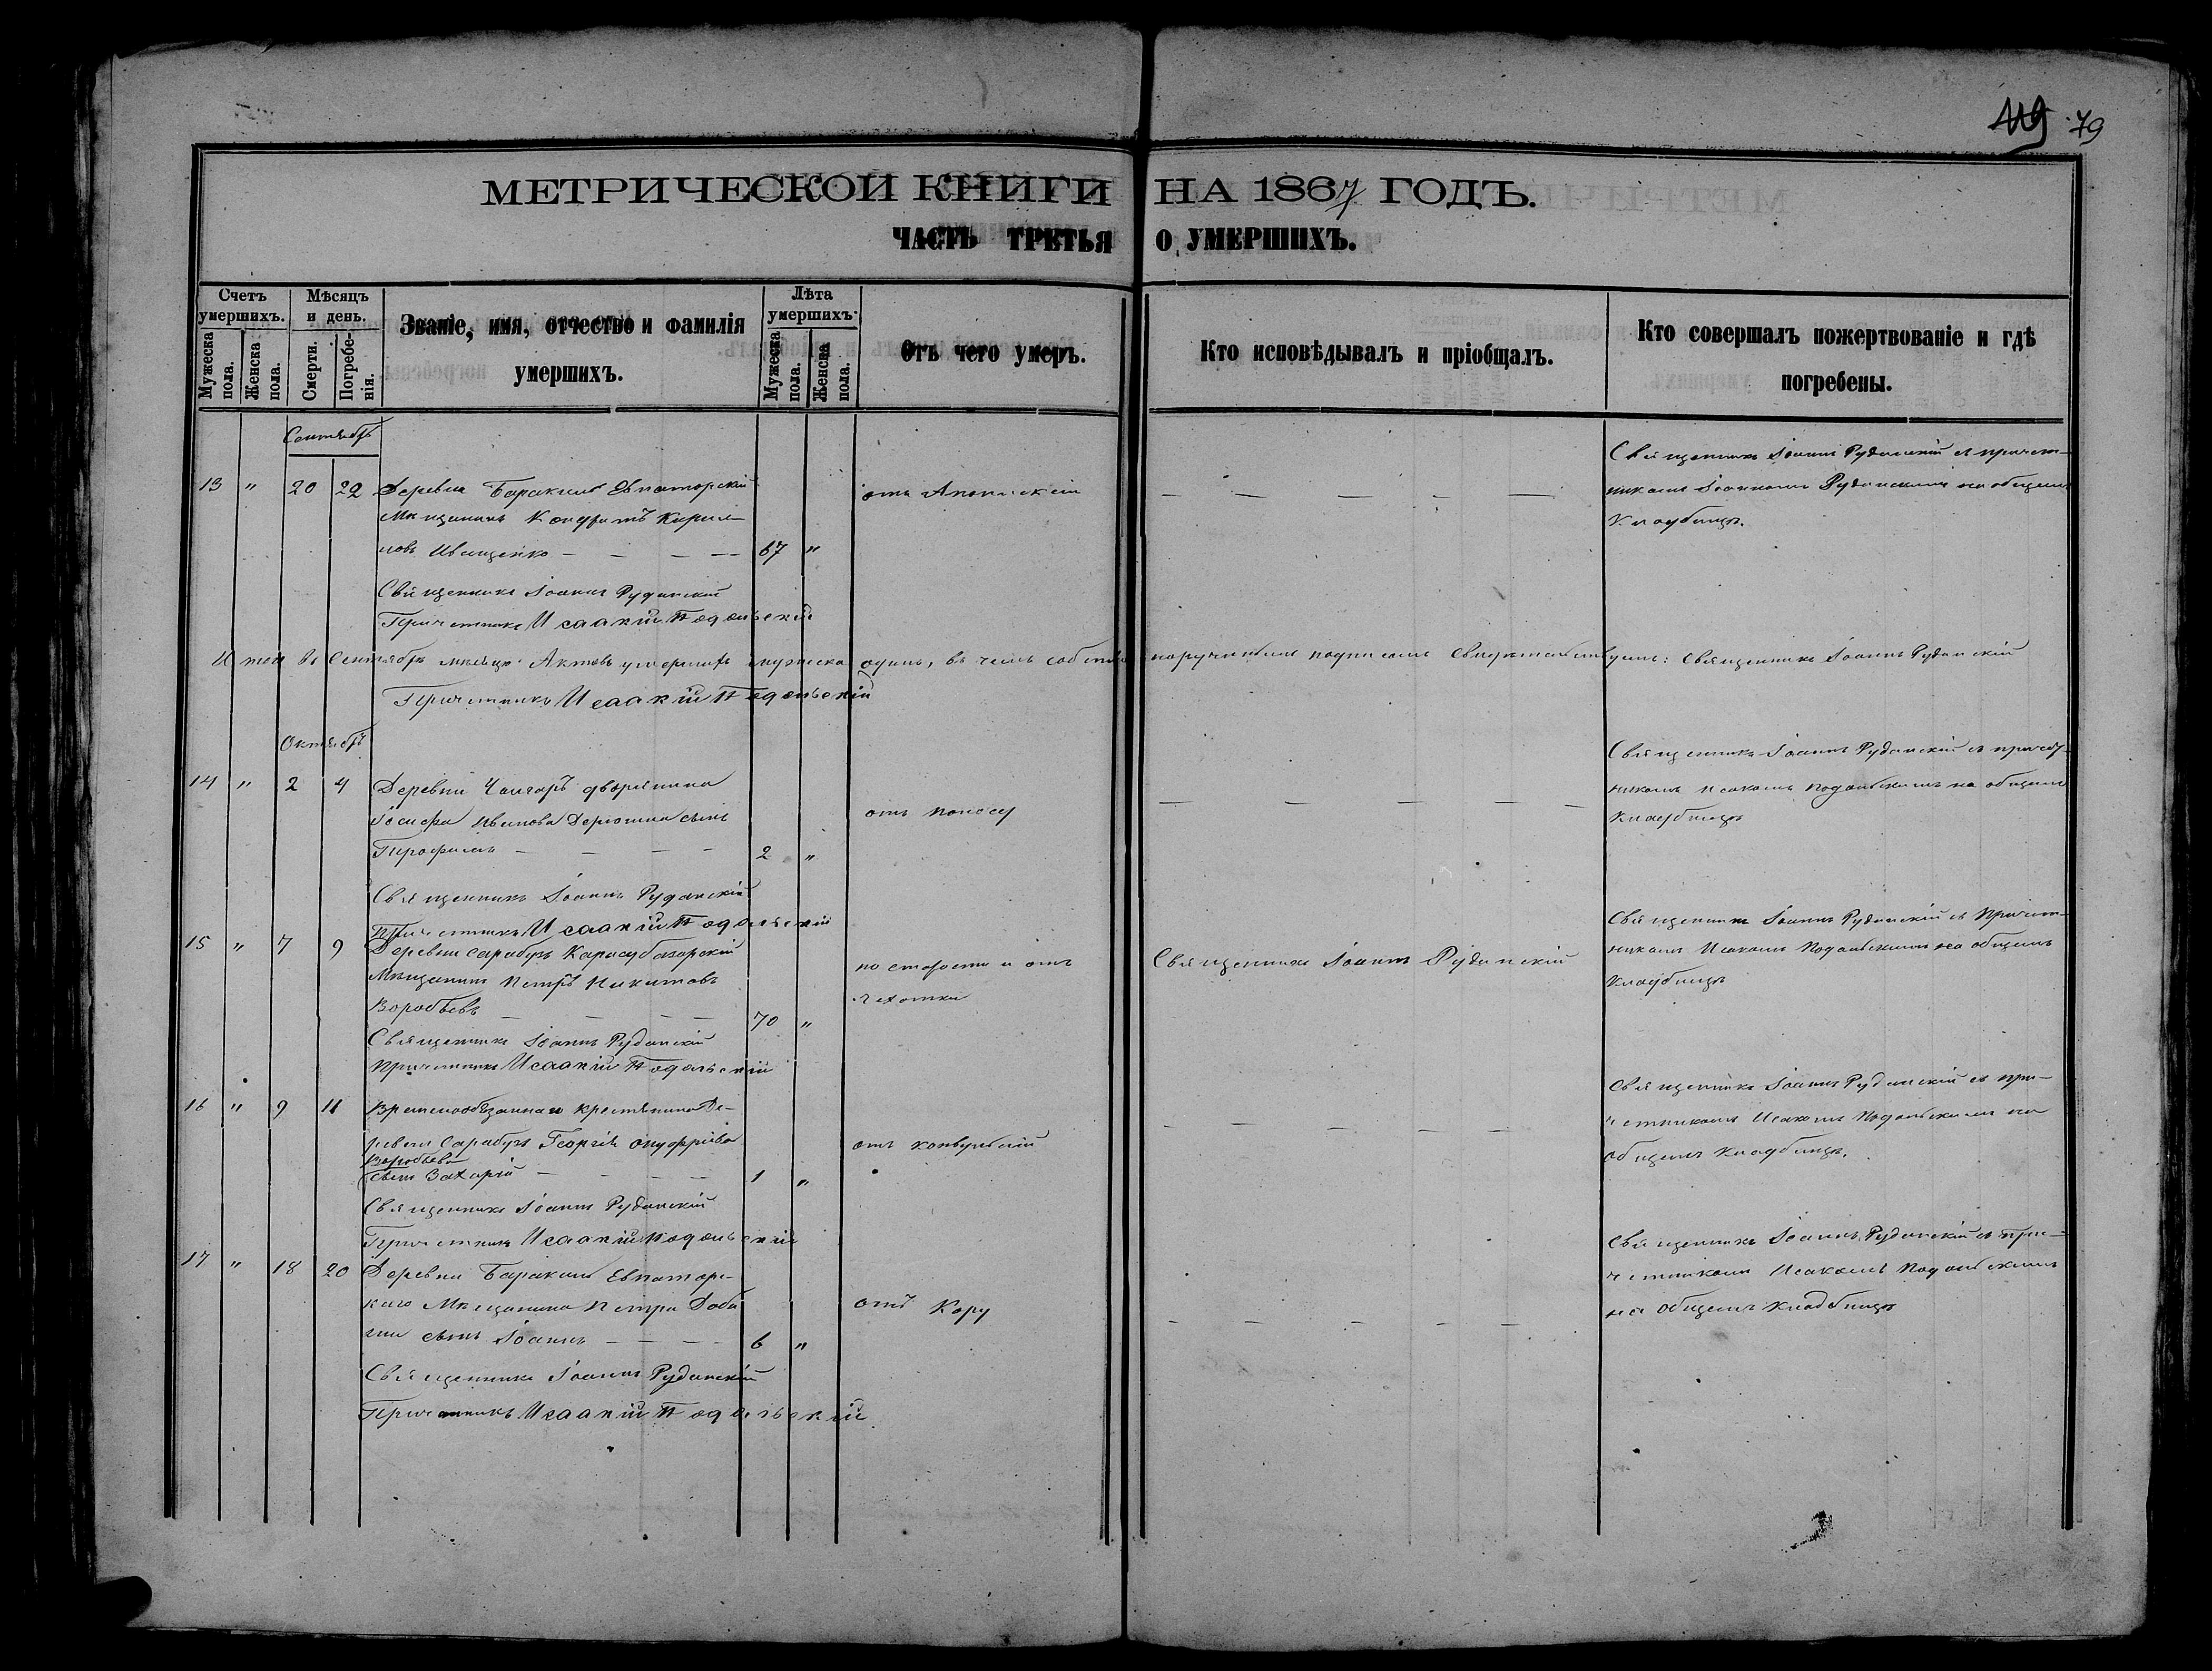 119 79
МЕТРИЧЕСКОЙ КНИГИ НА 1867 ГОДЪ.
ЧАСТЬ ТРЕТЬЯ О УМЕРШИХЪ.
Счетъ умершихъ.
Мужеска пола.
Женска пола.
Мѣсяцъ и день.
Смерти.
Погребенія.
Званіе, имя, отчество и фамилія умершихъ.
Лѣта умершихъ.
Мужеска пола.
Женска пола.
Отъ чего умеръ.
Кто исповѣдывалъ и пріобщалъ.
Кто совершалъ пожертвованіе и гдѣ погребены.
Сентябрь
13 " 20 22 Деревни Баракилъ Евпаторскій
Мѣщанинъ Кондратъ Кирил-
ловъ Иващенко — — — — 67 "
отъ
— — — — —
Священникъ Іоаннъ Руданскій съ причет-
никомъ Іоанномъ Руданскимъ на общемъ
Кладбищѣ.
Священникъ Іоаннъ Руданскій
Причетникъ Исаакій Подольскій
Итого въ Сентябрѣ мѣсяцѣ Актовъ умершихъ мужеска одинъ, въ чемъ собственноручнымъ подписомъ свидѣтельствуемъ: Священникъ Іоаннъ Руданскій
Причетникъ Исаакій Подольскій
Октябрь
14 " 2 4 Деревни Чонгаръ дворянина
Іосифа Иванова сынъ
— — — — 2 "
отъ поносу
— — — — —
Священникъ Іоаннъ Руданскій съ причет-
никомъ Исакомъ Подольскимъ на общемъ
Кладбищѣ
Священникъ Іоаннъ Руданскій
Причетникъ Исаакій Подольскій
15 " 7 9 Деревни Сарабузъ Карасубазарскій
Мѣщанинъ Петръ Никитовъ
Воробьевъ — — — — 70 "
по старости и отъ
чахотки
Священникъ Іоаннъ Руданскій
Священникъ Іоаннъ Руданскій съ Причет-
никомъ Исакомъ Подольскимъ на общемъ
Кладбищѣ
Священникъ Іоаннъ Руданскій
Причетникъ Исаакій Подольскій
16 " 9 11 Временнообязаннаго крестянина Де-
ревни Сарабузъ Георгія Онуфріева
Воробьева
сынъ Захарій — — — — 1 "
отъ конвульсій
— — — — —
Священникъ Іоаннъ Руданскій съ при-
четникомъ Исакомъ Подольскимъ на
общемъ Кладбищѣ.
Священникъ Іоаннъ Руданскій
Причетникъ Исаакій Подольскій
17 " 18 20 Деревни Баракилъ Евпаторс-
каго Мѣщанина Петра
сынъ Іоаннъ — — — 6 "
отъ Кору
— — — — —
Священникъ Іоаннъ Руданскій съ при-
четникомъ Исакомъ Подольскимъ
на общемъ Кладбищѣ
Священникъ Іоаннъ Руданскій
Причетникъ Исаакій Подольскій